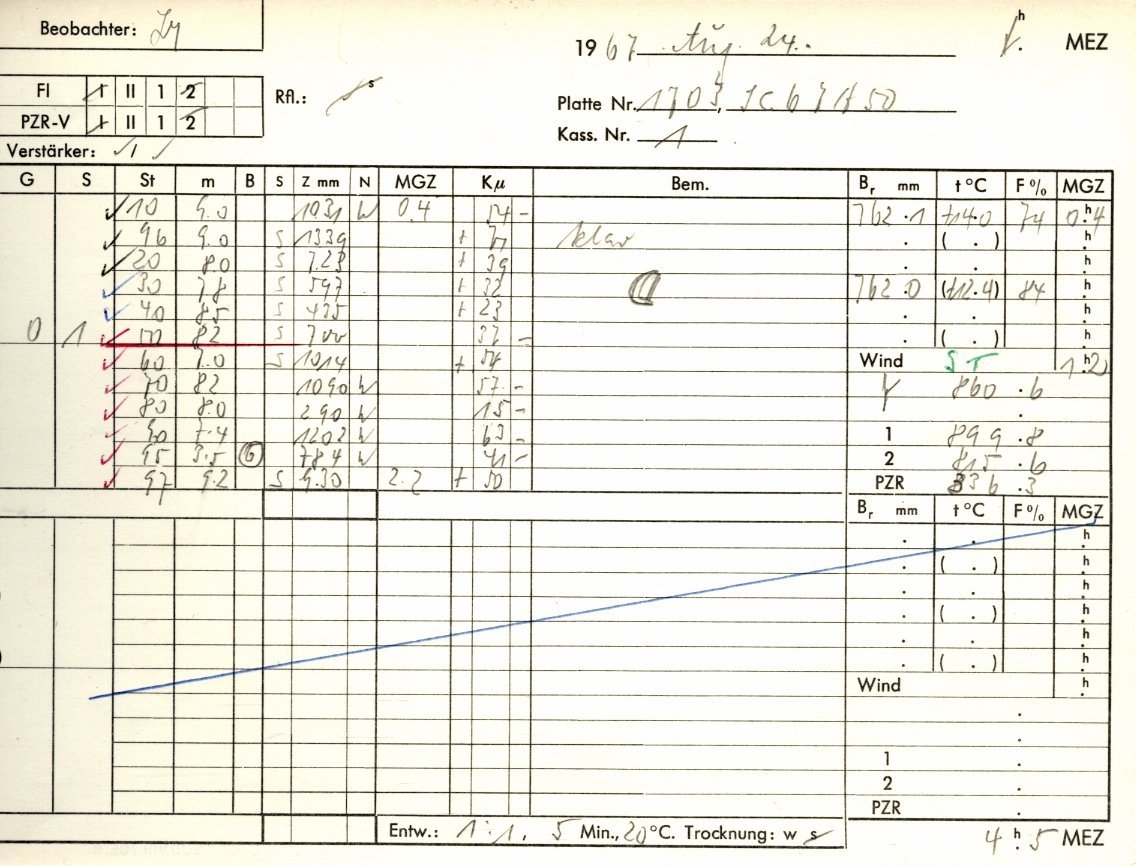 Beobachter:
1967 Aug. 24. h. MEZ
FI I II 1 2
PZR-V I II 1 2
Rfl.: s
Platte Nr. 1703,
Kass. Nr. 1
Verstärker:
G S St m B S Z mm N MGZ Kμ Bem. Br mm t °C F % MGZ
10 9.0 1031 N 0.4 54 - 762.1 +14.0 74 0.4
96 9.0 S 1339 + klar ( . ) h
20 8.0 S 723 + 39
30 7.8 S 597 + 32 762.0 (+12.4) 84 h
40 8.5 S 435 + 23
0 1 50 82 S 700 37 - ( . ) h
60 7.0 S 1014 + 54 Wind ST 1.2
70 82 1090 N 57 - 860.6
80 8.0 290 N 15 -
90 7.4 1202 N 63 - 1 899.8
95 3.5 6 784 N 41 - 2 815.6
97 9.2 S 930 2.2 + 50 PZR 336.3
Br mm t °C F % MGZ
. . h
. ( . ) h
. . h
. ( . ) h
. . h
. ( . ) h
Wind h
1 .
2 .
PZR .
Entw.: 1:1, 5 Min., 20 °C. Trocknung: w s
4 h. 5 MEZ